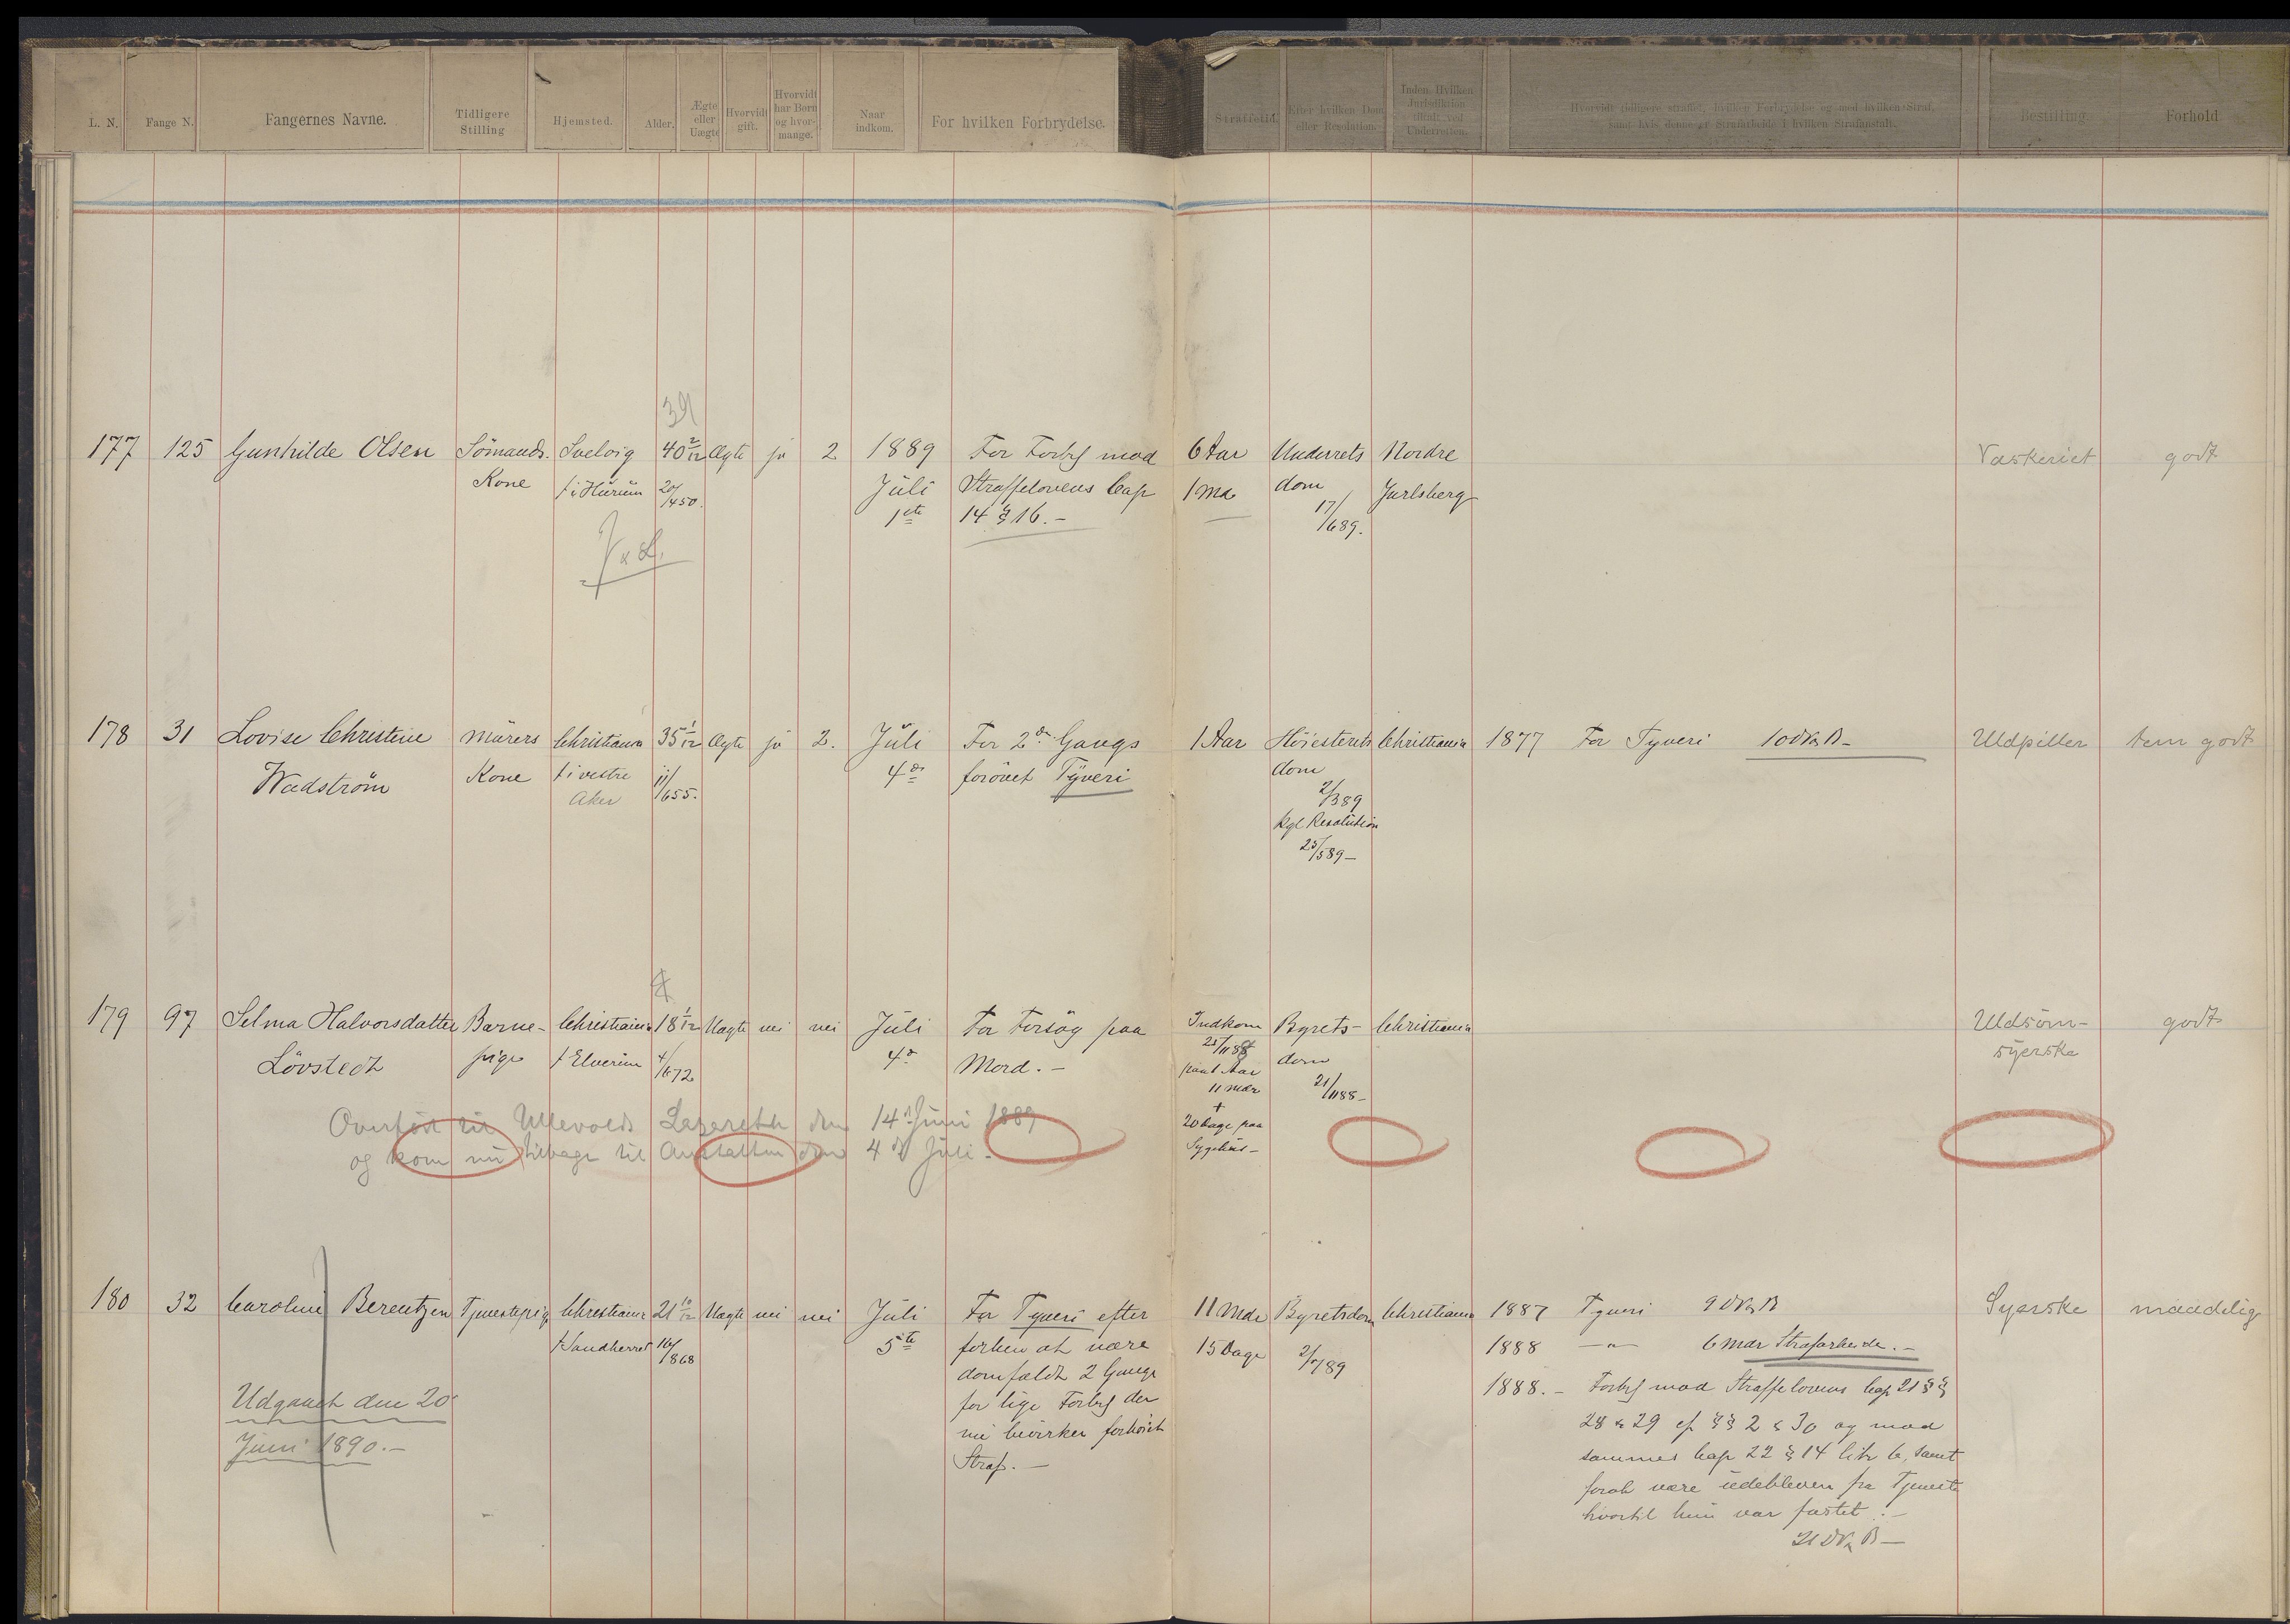 L. N. Fange N. Fangernes Navne. Tidligere Stilling Hjemsted. Alder. Ægte eller Uægte Hvorvidt gift. Hvorvidt har Børn og hvor-mange. Naar indkom. For hvilken Forbrydelse. Straffetid. Efter hvilken Dom eller Resolution. Inden Hvilken Jurisdiktion tiltalt ved Underretten. Hvorvidt tidligere straffet, hvilken Forbrydelse og med hvilken Straf, samt hvis denne er Strafarbeide i hvilken Strafanstalt. Bestilling Forhold
39
177 125 Gunhilde Olsen Sömands. Svelvig 40 2/12 Ægte ja 2 1889 For Forbr mod 6 Aar Underrets Nordre Vaskeriet godt
Kone f i Hürüm 20/4 50. Jüli Straffelovens Cap 1 Md dom Jarlsberg
1ste 14 § 16.- 17/6 89.
178 31 Lovise Christine Mürers Christiania 35 1/12 Ægte ja 2. Jüli For 2den Gangs 1 Aar Höiesterets Christiania 1877 For Tyveri 10 D V & B- Uldpiller tem godt
Wadström Kone f i vestre 11/6 55. 4de forövet Tÿveri dom
Aker 2/3 89
Kgl Resolütion
25/5 89-
179 97 Selma Halvorsdatter Barne- Christiania 18 1/12 Uægte nei nei Jüli For Forsög paa Indkom Byrets- Christiania Uldsöm- godt
Lövstedt pige f Elverüm 4/6 72 4de Mord.- 25/11 88 dom syerske
paa 1 Aar
11 Mdr 21/11 88-
+
Overført til Ullevolds Lazereth den 14de Juni 1889 20 Dage paa
og kom nu tilbage til Anstalten den 4de Juli. Sygehüs-
180 32 Caroline Berentzen Tjenestepige Christiania 21 10/12 Uægte nei nei Jüli For Tyveri efter 11 Mdr Byretsdom Christiania 1887 Tyveri 9 D V & B Syerske maadelig
f Sandherred 16/8 68 5te forhen at være 15 Dage 2/7 89 1888 -"- 6 Mdr Strafarbeide.-
domfældt 2 Gange 1888.- Forbr mod Straffelovens Cap 21 §§
Udgaaet den 20de for lige Forbr der 28 & 29 cf §§ 2 & 30 og mod
Juni 1890.- nü bevirker forhöiet sammes Cap 22 § 14 litr b, samt
Straf.- forat være üdebleven fra Tjeneste
hvortil hün var fæstet.-
21 D V & B-